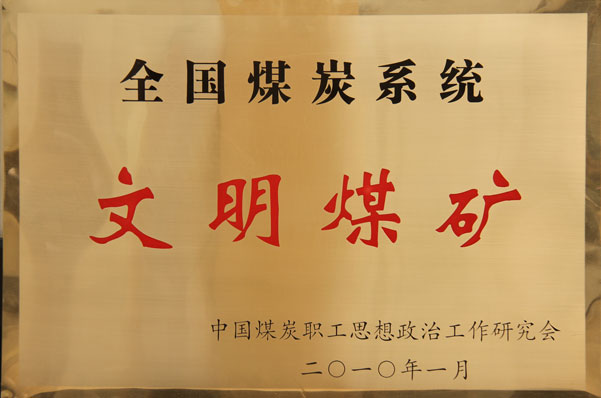 全国煤炭系统
文明煤矿
中国煤炭职工思想政治工作研究会
二〇一〇年一月